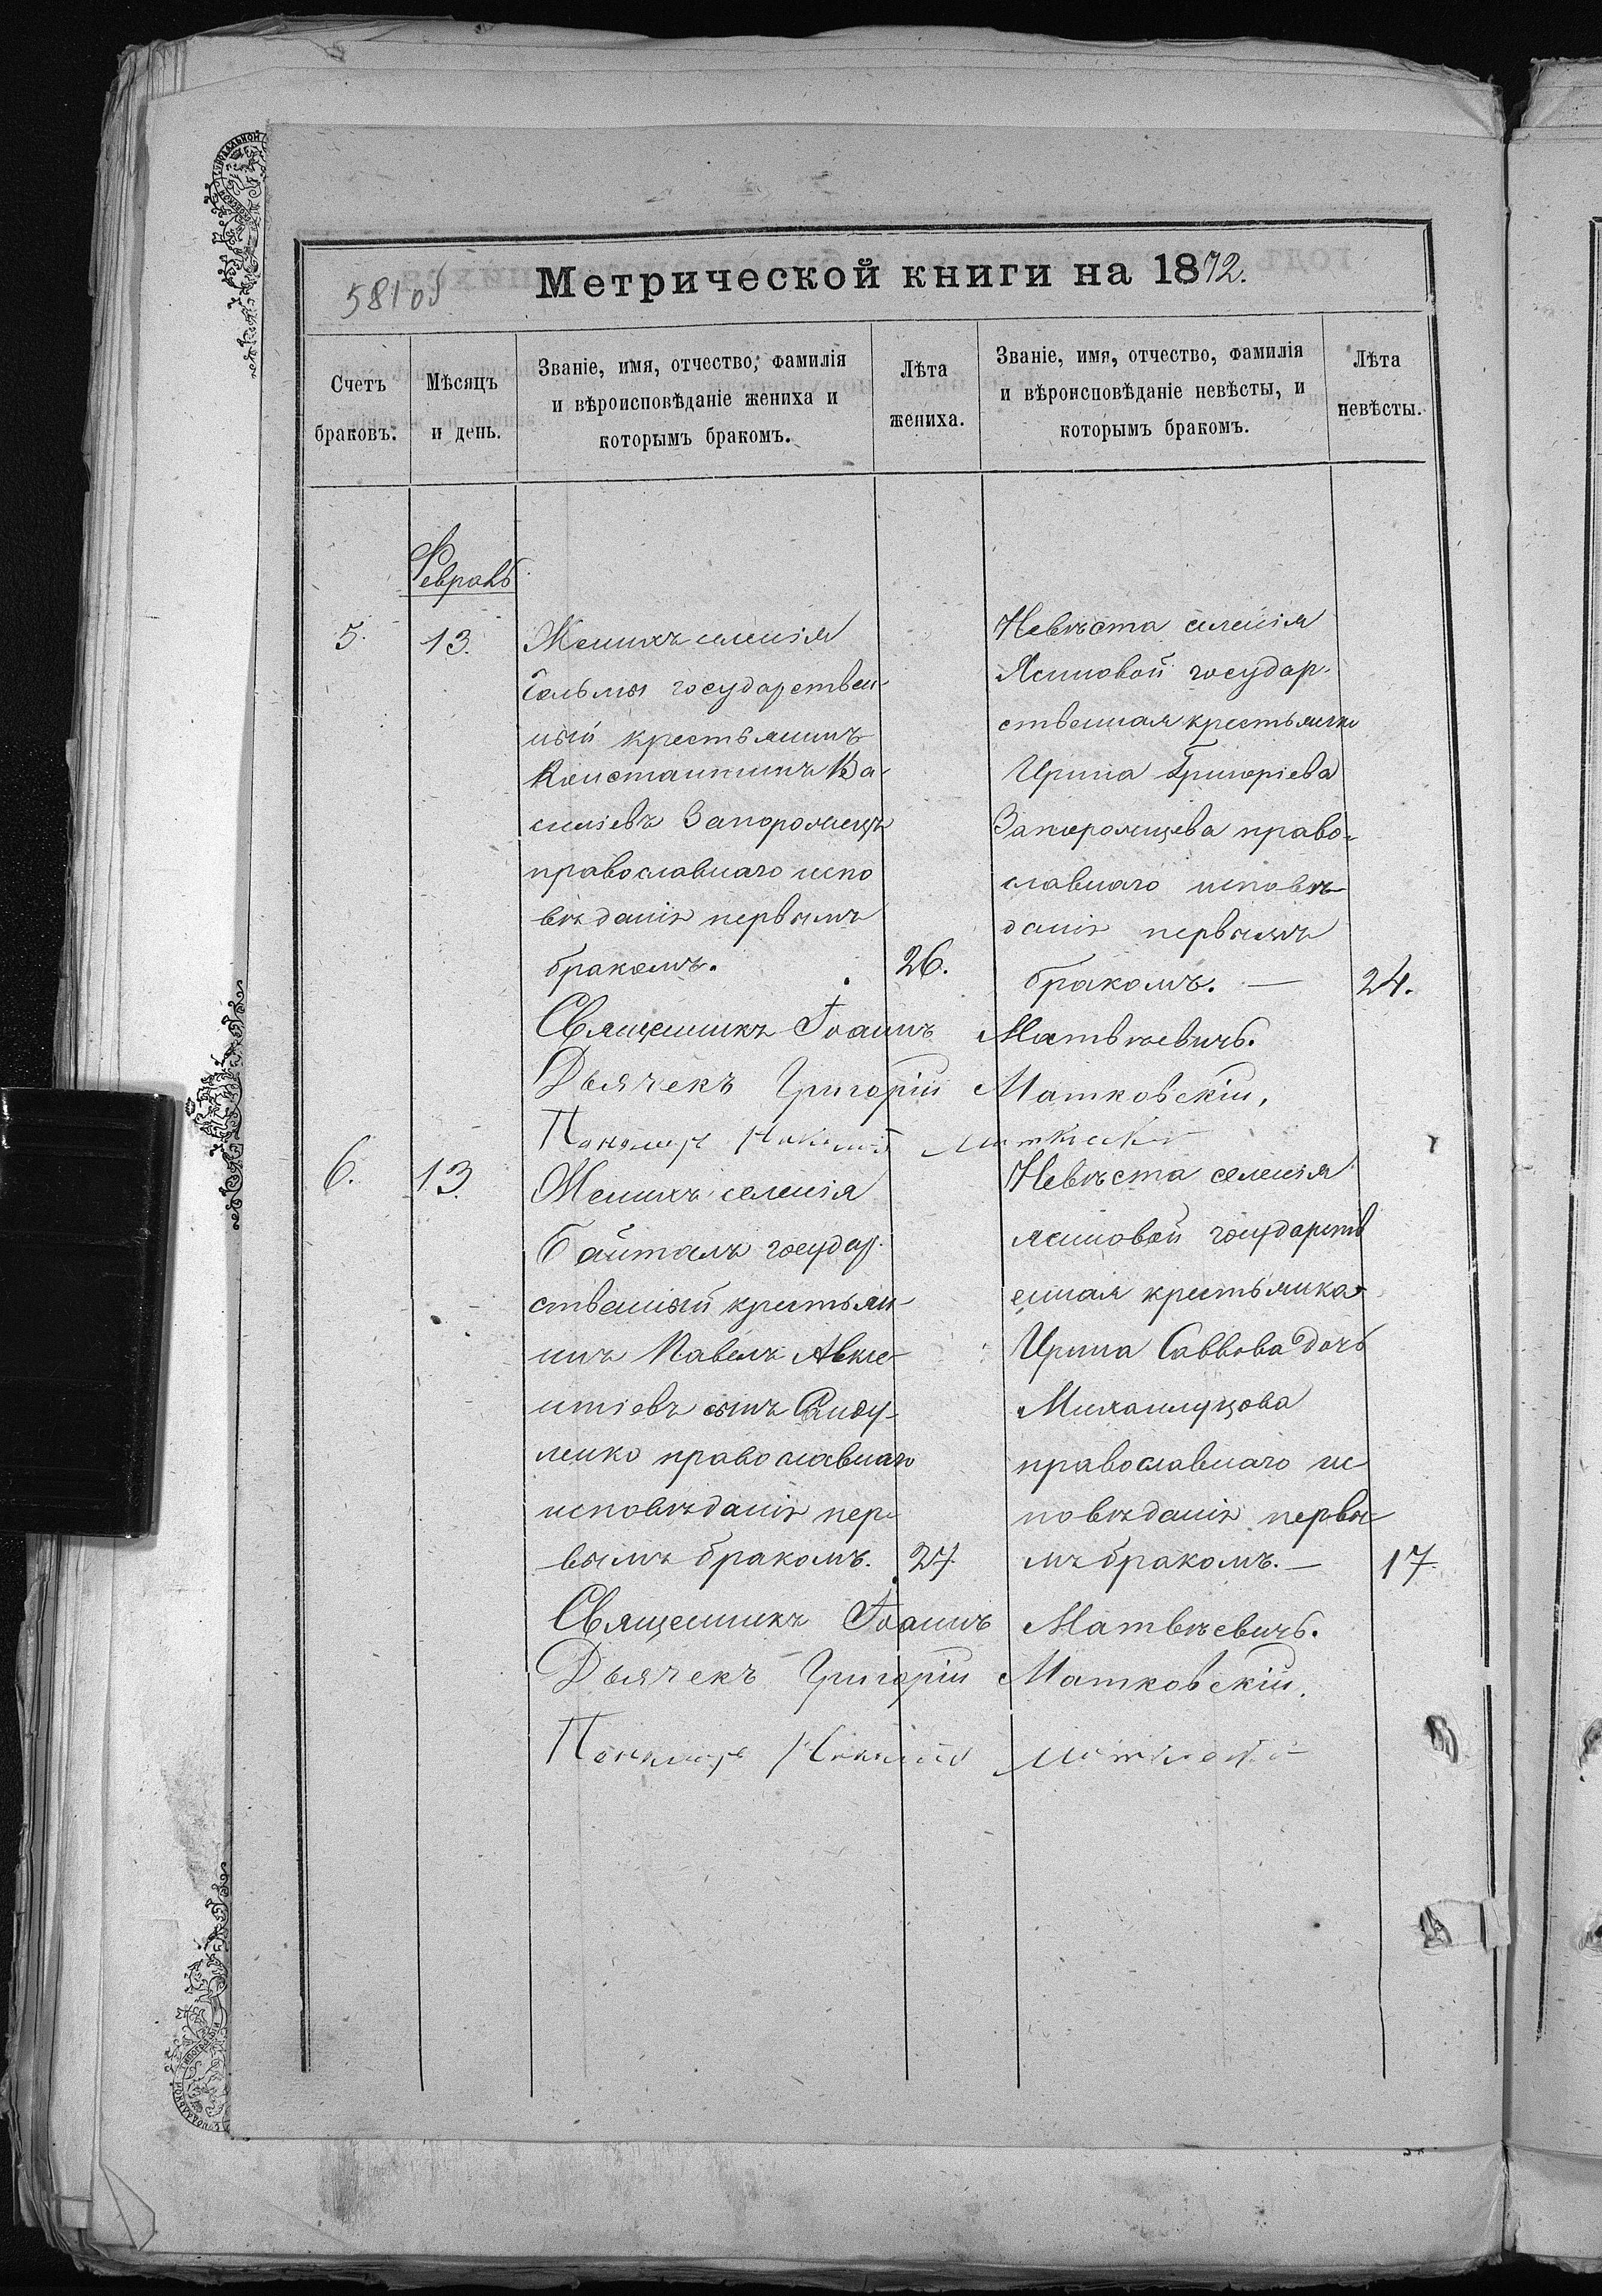 58105
Метрической книги на 1872.
Счетъ браковъ.
Мѣсяцъ и день.
Званіе, имя, отчество, фамилія
и вѣроисповѣданіе жениха и
которымъ бракомъ.
Лѣта
жениха.
Званіе, имя, отчество, фамилія
и вѣроисповѣданіе невѣсты, и
которымъ бракомъ.
Лѣта
невѣсты.
Февраль
5. 13.
Женихъ селенія
Гольмы государствен-
ный крестьянинъ
Константинъ Ва-
силіевъ Запорожецъ
православнаго испо
вѣданія первымъ
бракомъ. 26.
Невѣста селенія
Ясиновой государ-
ственная крестьянка
Ирина Григоріева
Запорожцева право-
славнаго исповѣ-
данія первымъ
бракомъ. — 24.
Священникъ Іоаннъ Матвѣевичъ.
Дьячекъ Григорій Матковскій.
Пономарь
6. 13.
Женихъ селенія
Байталъ государ-
ственный крестьян-
инъ Павелъ Авксе-
нтіевъ сынъ
православнаго
исповѣданія пер-
вымъ бракомъ. 27.
Невѣста селенія
Ясиновой государств
енная крестьянка
Ирина Саввова дочь
Михайлуцова
православнаго ис
повѣданія первы-
мъ бракомъ. — 17.
Священникъ Іоаннъ Матвѣевичъ.
Дьячекъ Григорій Матковскій.
Пономарь